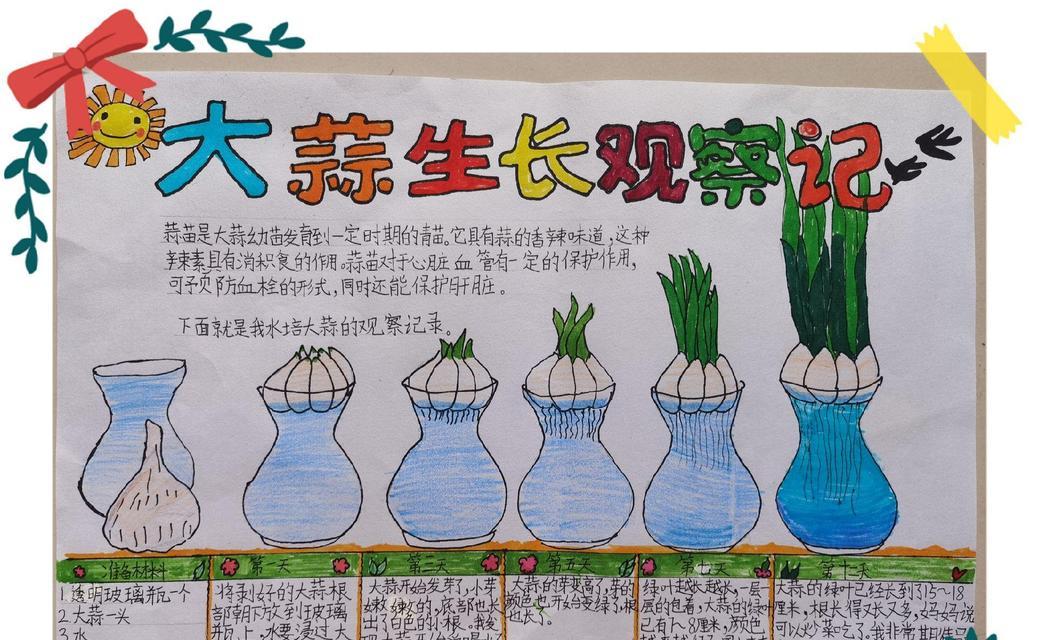 大蒜生长观察记
蒜苗是大蒜幼苗发育到一定时期的青苗。它具有蒜的香辣味道，这种
辣素具有消积食的作用。蒜苗对于心脏血管有一定的保护作用，
可予贝防血栓的形式，同时还能保护肝脏。
下面就是我水培大蒜的观察记录。
准备材料
1.透明玻璃瓶一个
2.大蒜一头
3.水
第一天
将剥好的大蒜根
部朝下放到玻璃
瓶上,水要浸过大
第二天
大蒜开始发芽了,小芽
嫩嫩的,底部也长
出了白色的小根。我发
第五天
大蒜的芽变高了,芽的
颜色也开始变绿了,根
也长了。
第七天
绿叶越长越长,一层
层的包着,大蒜的绿叶
已有7~8厘米,颜色
第十天
大蒜的绿叶已经长到了15~18
厘米,根长得又长又多,妈妈说
可以炒菜吃了。我非常